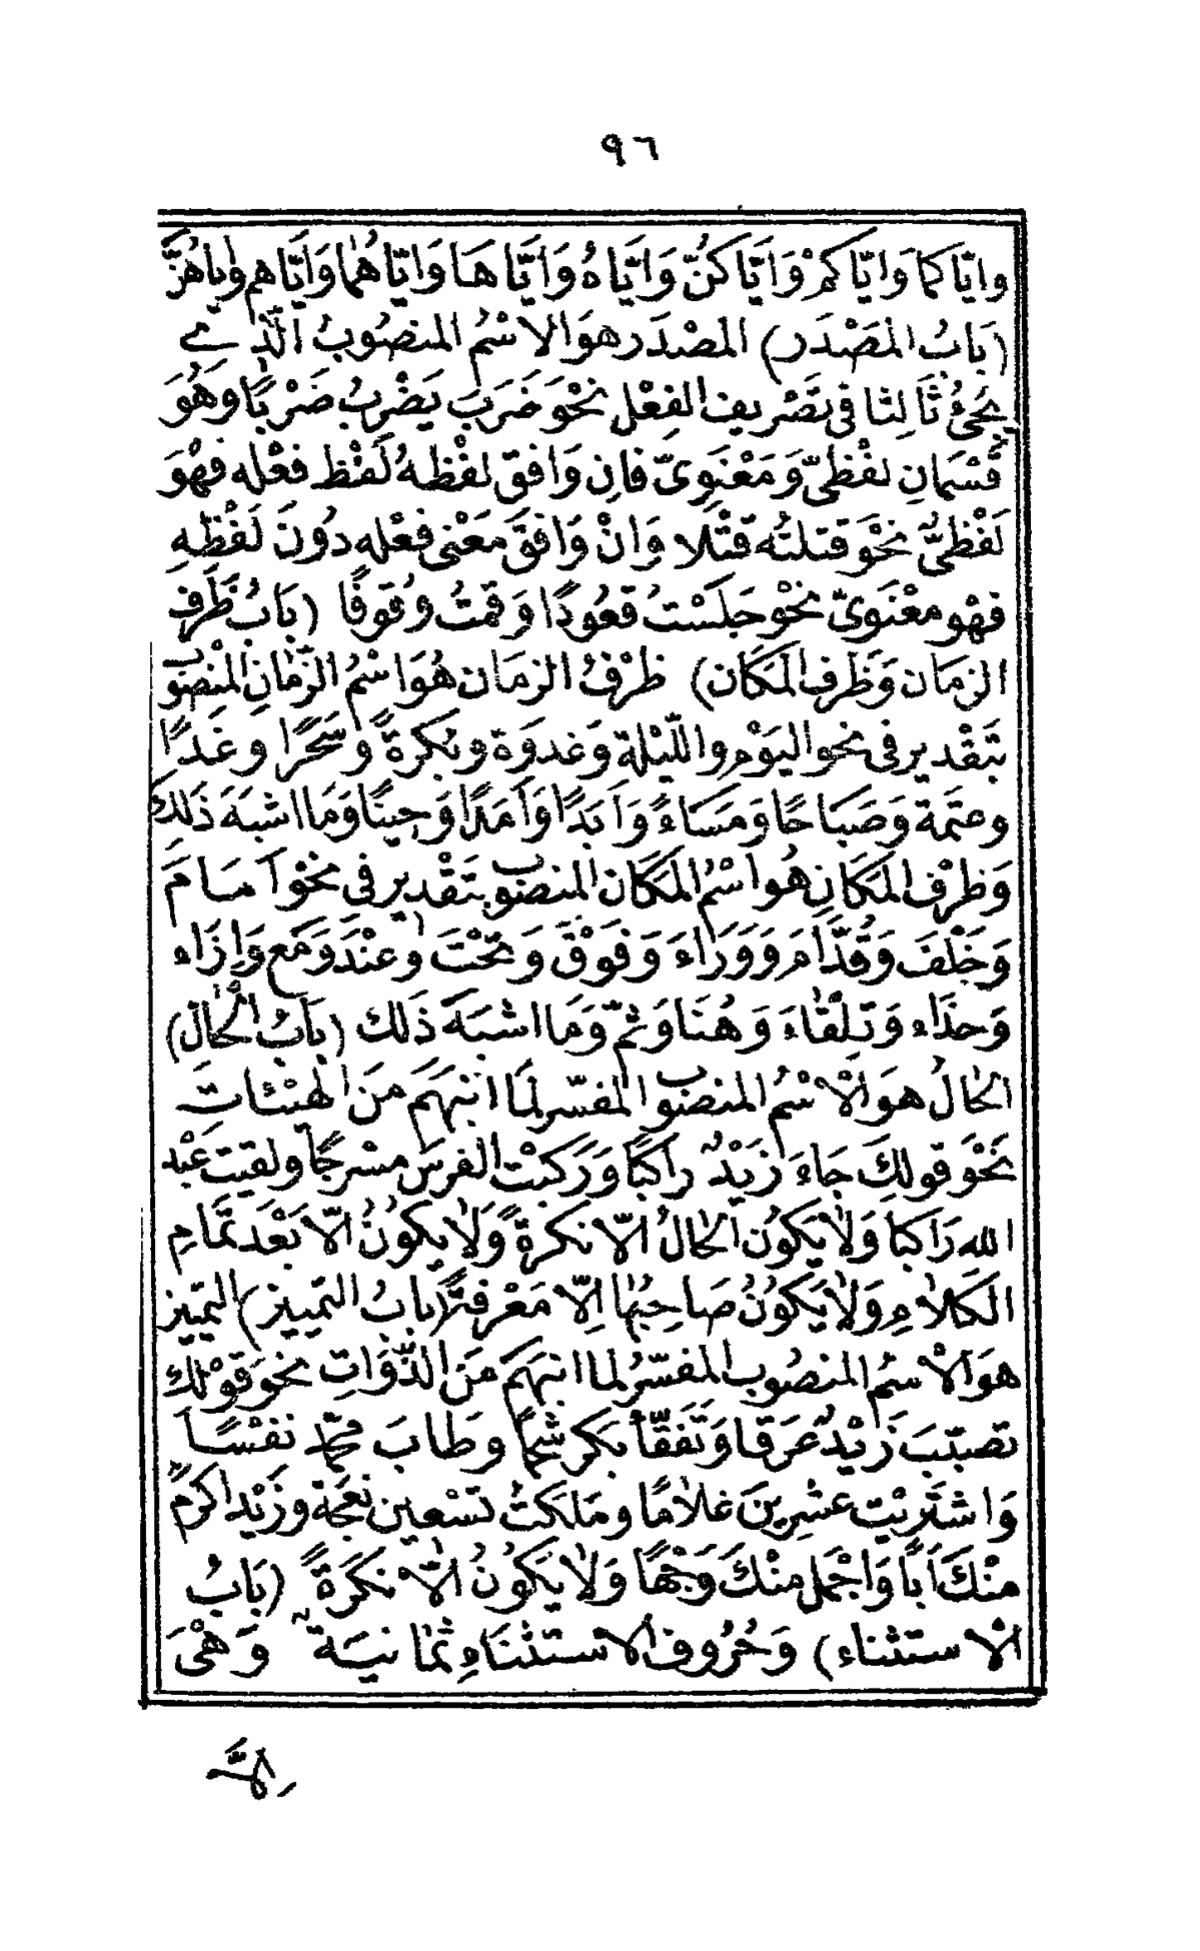 ٩٦
وَاِيَّاكُمَا وَاِيَّاكُمْ وَاِيَّاكُنَّ وَاِيَّاهُ وَاِيَّاهَا وَاِيَّاهُمَا وَاِيَّاهُم وَاِيَّاهُنَّ
(بَابُ المَصْدَر) المَصْدَر هوَ الاسْمُ المنصُوبُ الَّذِى
يَجِىُٔ ثَالِثا فى تَصْرِيف الفِعْل نَحْوَ ضَرَبَ يَضْرِبُ ضَرْبًا وَهُوَ
قِسْمَانِ لفْظىّ وَمَعْنَوِىّ فَان وَافقَ لفْظهُ لَفْظ فعْله فهْوَ
لَفْظىٌّ نحْوَ قتلتُه قتْلا وَانْ وَافَقَ مَعْنى فعْله دُونَ لَفْظِهِ
فهْو معْنَوىّ نحْوَ جَلَسْتُ قعُودًا وَقمتُ وُقوفًا (بَابُ ظَرْف
الزمَان وَظَرْف المَكَان) ظرْفُ الزمَان هُوَ اسْمُ الزَّمَانِ المنْصُوب
بتَقْدير فى نحو اليَوْم والليْلة وَغدوَة وبُكرَةً وَسَحَرًا وغَدًا
وعتَمَة وَصَبَاحًا وَمَسَاءً وَاَبَدًا وَاَمَدًا وَحِينًا وَمَا اشبَهَ ذَلِكَ
وَظرْف المَكَانِ هُوَ اسْمُ المَكَان المنصُوب بتَقْدير فى نحْو اَمَامَ
وَخَلْفَ وَقُدَّامَ وَوَرَاءَ وَفَوْقَ وَتحْتَ وعنْدَ وَمَع وَازَاء
وَحذَاء وَتِلْقَاءَ وَهُنَا وَثمّ وَمَا اشبَهَ ذَلك (بَابُ الْحَال)
الحَالُ هوَ الاسْمُ المنصُوب المفسّر لمَا انبَهَمَ مَنَ الهَيْئاتِ
نَحْوَ قولكَ جَاءَ زَيْدٌ رَاكبًا وَرَكبْت الفرَسَ مسْرجًا ولقيت عَبْد
الله رَاكبًا وَلَا يَكوُن الحَالُ الّا نكرَةً وَلَا يكوُنُ الّا بَعْد تَمَام
الكَلَامِ وَلَا يَكوُنُ صَاحِبُهَا اِلّا مَعْرفَةً (بابُ التمييز) التمييز
هوَ الاسْمُ المنصُوب المفسّرُ لما انبَهَمَ مَنَ الذَّوَاتِ نحْوَ قوْلك
تصبّبَ زَيْدٌ عَرَقا وَتَفَقّأ بَكر شحْمًا وطَابَ محمّد نفْسًا
وَاشتَرَيْت عشْرِينَ غلَامًا ومَلَكتُ تسْعين نعْجَة وزَيْد اكرَمُ
منْكَ اَبًا وَاجْمَل منْكَ وَجْهًا وَلَا يَكوُنُ الّا نكَرَةً (بَابُ
الاستثناء) وَحُرُوف الاستثنَاءِ ثمَانيَة وَهْىَ